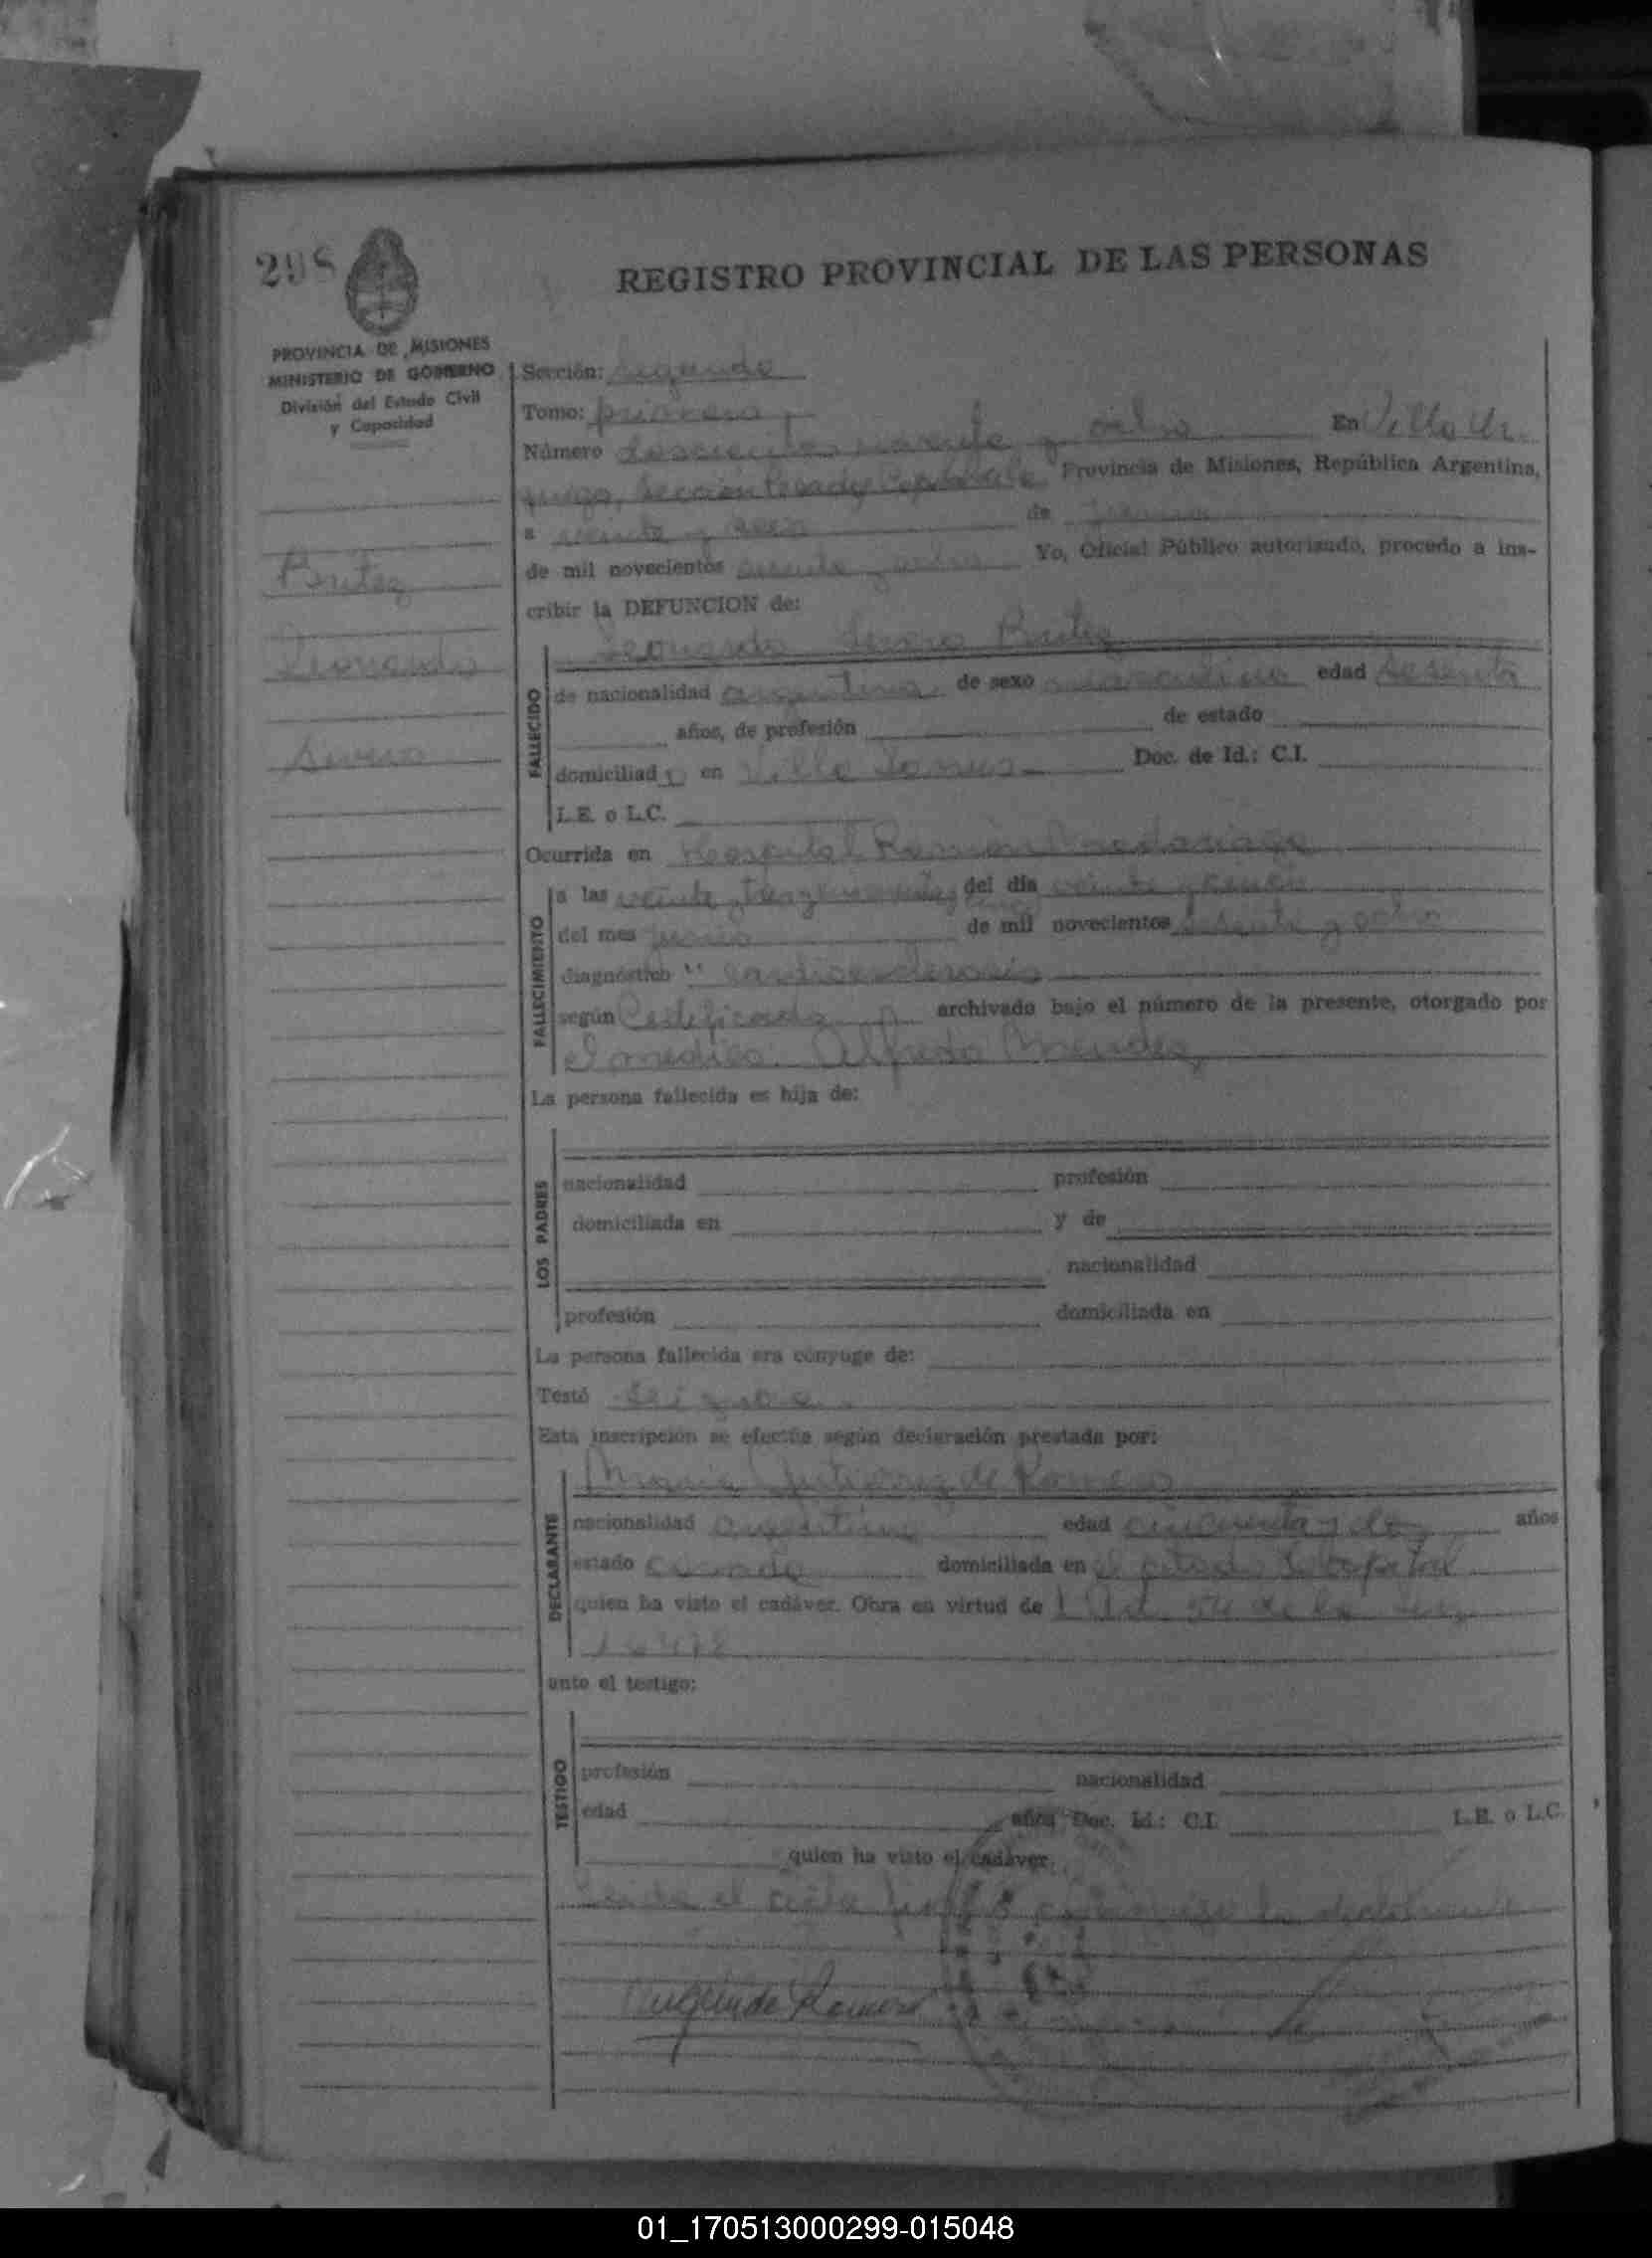 298
REGISTRO PROVINCIAL DE LAS PERSONAS
PROVINCIA DE MISIONES
MINISTERIO DE GOBIERNO
División del Estado Civil
y Capacidad
Sección: segunda
Tomo: primero
Número doscientos noventa y ocho En Villa Ur
quiza, Sección Posadas Provincia de Misiones, República Argentina,
a veinte y seis de junio
de mil novecientos sesenta y ocho Yo, Oficial Público autorizado, procedo a ins-
cribir la DEFUNCION de:
Benitez
Leonardo
Leonardo Benitez
FALLECIDO
de nacionalidad argentina de sexo masculino edad sesenta
años, de profesión de estado
domiciliado en Villa Lanus Doc. de Id.: C.I.
L.E. o L.C.
Ocurrida en Hospital Ramón Madariaga
FALLECIMIENTO
a las veinte y tres y del día veinte y cinco
del mes junio de mil novecientos sesenta y ocho
diagnóstico "cardioesclerosis
según Certificado archivado bajo el número de la presente, otorgado por
el médico: Alfredo Mendez
La persona fallecida es hija de:
LOS PADRES
nacionalidad profesión
domiciliada en y de
nacionalidad
profesión domiciliada en
La persona fallecida era cónyuge de:
Testó Se ignora
Esta inscripción se efectúa según declaración prestada por:
DECLARANTE
Maria Gutierrez de Romero
nacionalidad argentina edad cincuenta y dos años
estado casada domiciliada en el citado Hospital
quien ha visto el cadáver. Obra en virtud de Art. 54 de la Ley
ante el testigo:
TESTIGO
profesión nacionalidad
edad años Doc. Id.: C.I. L.E. o L.C.
quien ha visto el cadáver.
Leida el acta firma conmigo la declarante
de Romero
01_170513000299-015048